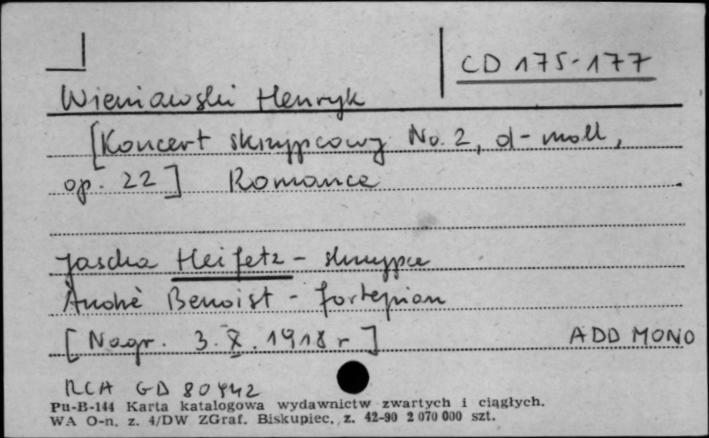 CD 175-177
Wieniawski Henryk
[Koncert skrzypcowy No. 2, d-moll,
op. 22] Romance
Jascha Heifetz - skrzypce
André Benoist - fortepian
[Nagr. 3.X.1918 r]
ADD MONO
RCA GD 80942
Pu-B-144 Karta katalogowa wydawnictw zwartych i ciągłych.
WA O-n. z. 4/DW ZGraf. Biskupiec, z. 42-90 2 070 000 szt.